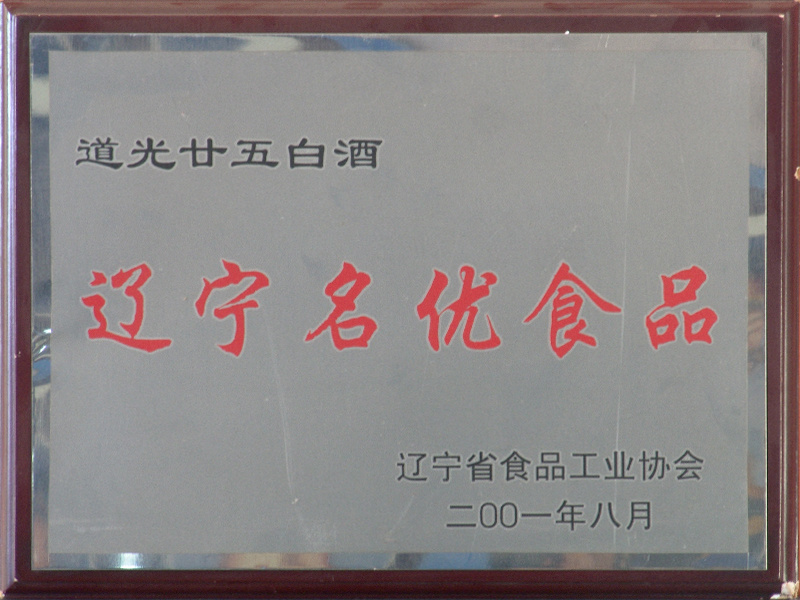 道光廿五白酒
辽宁名优食品
辽宁省食品工业协会
二00一年八月